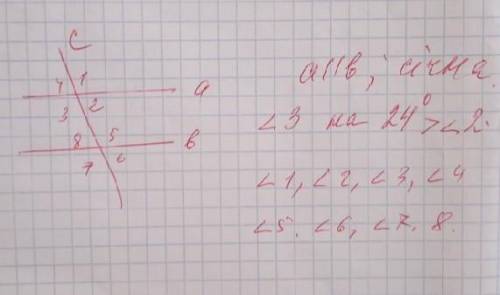 c
4 1
a
3 2
8 5
b
7 6
a||b; січна.
∠3 на 24° > ∠2.
∠1, ∠2, ∠3, ∠4
∠5. ∠6, ∠7. 8.